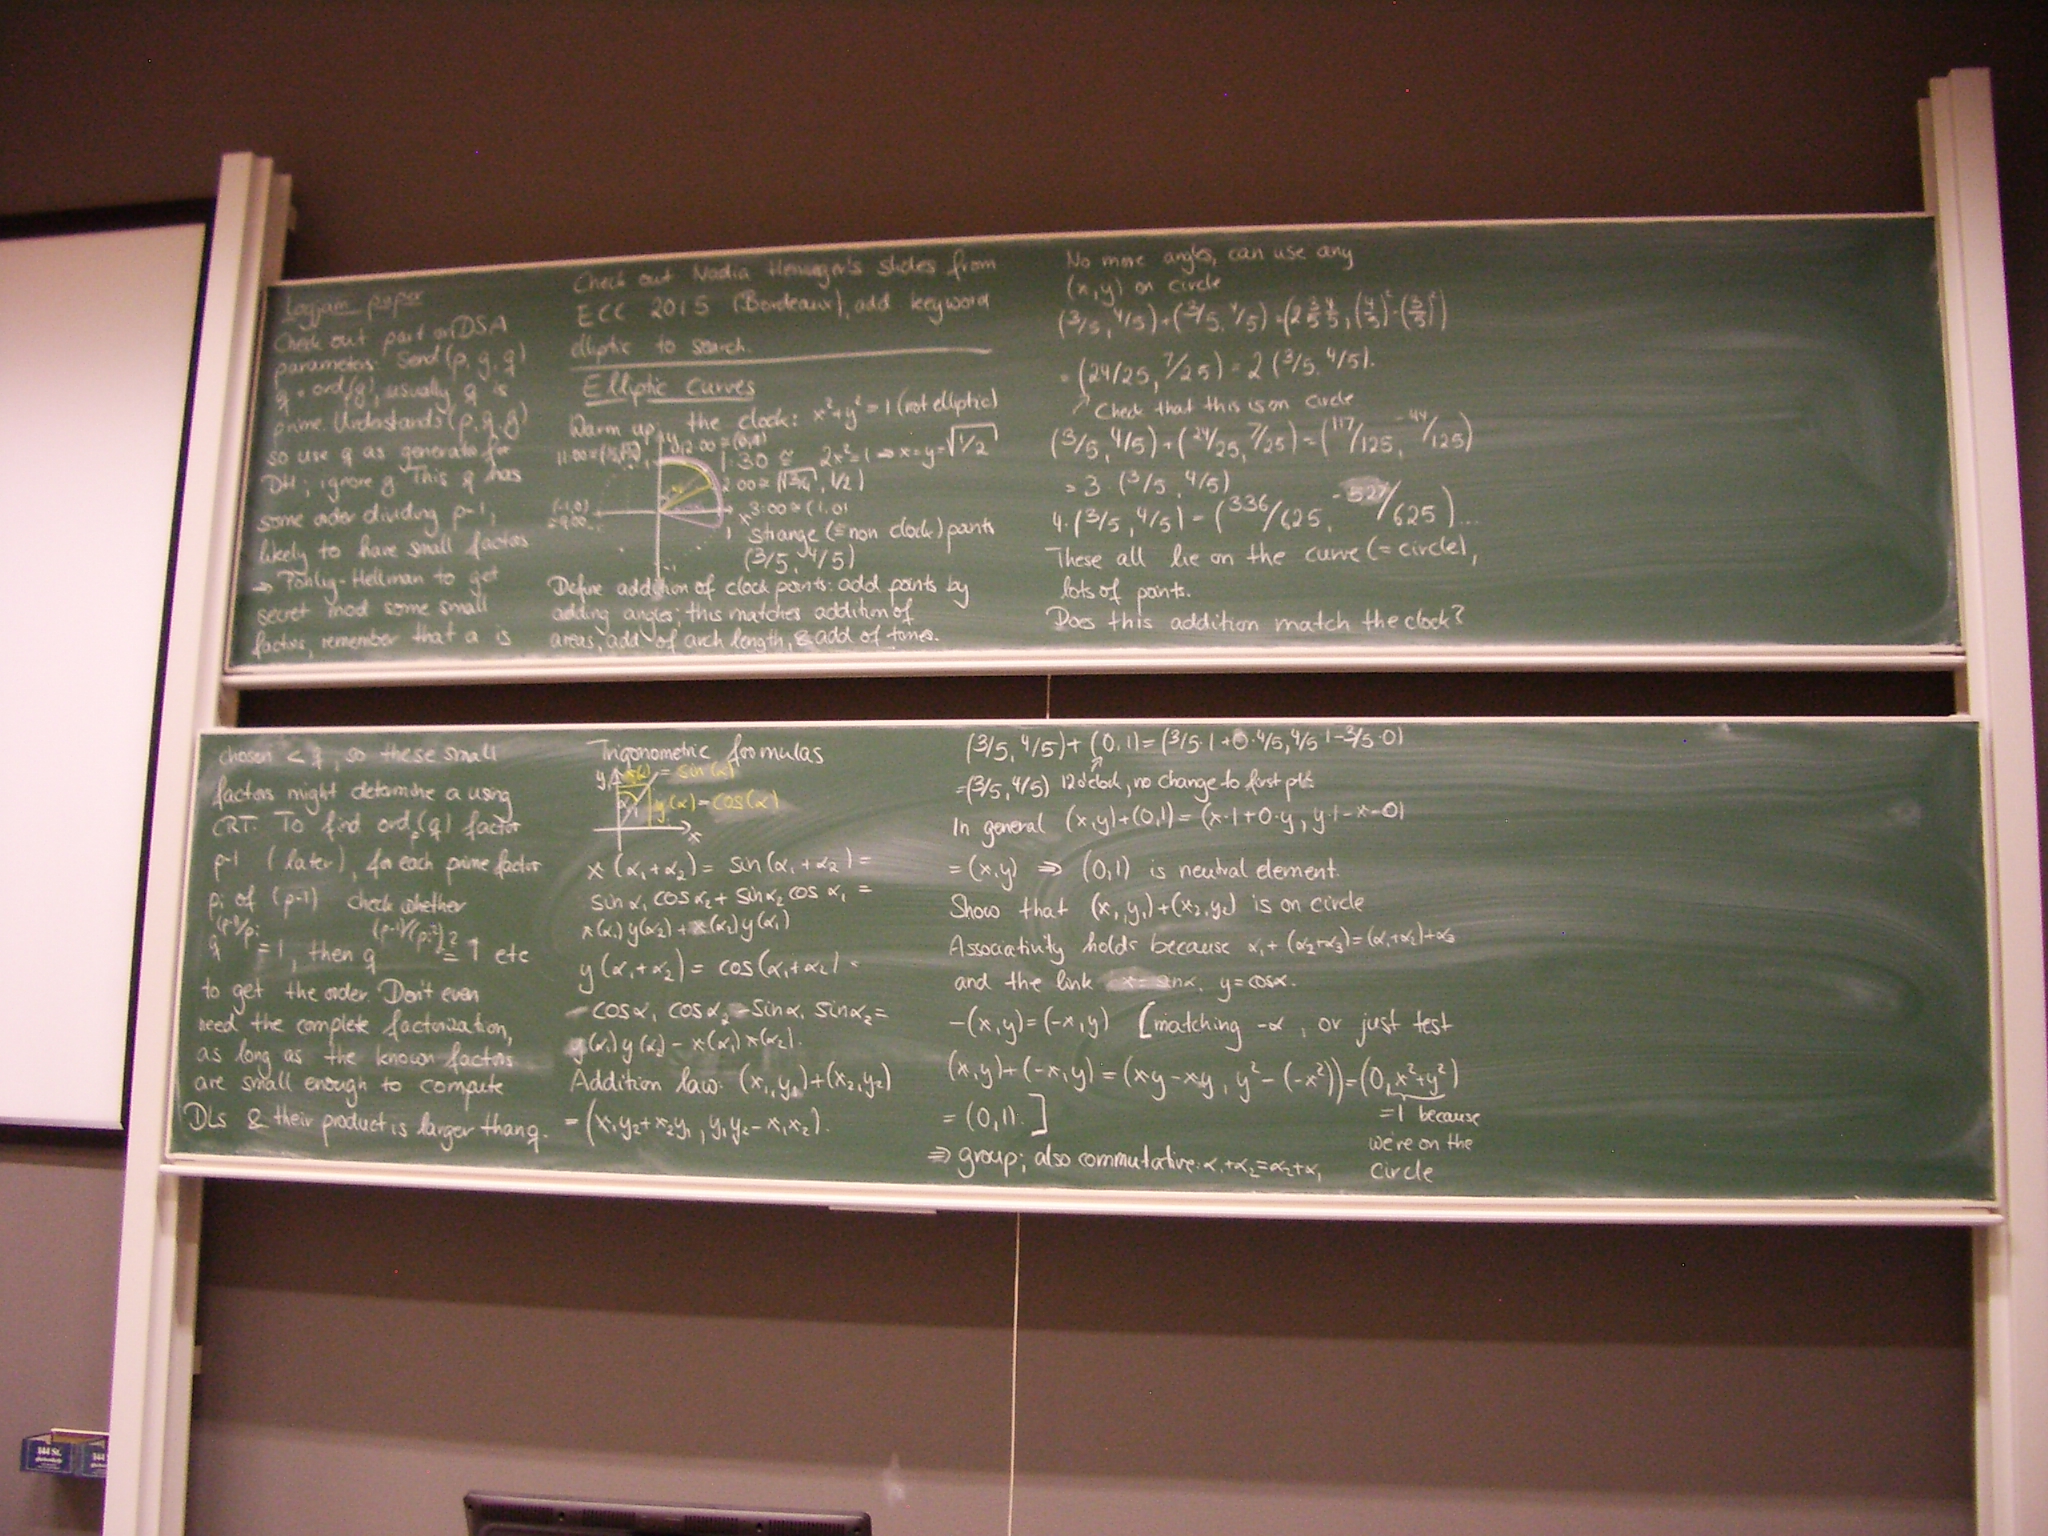 Logjam paper
Check out part on DSA
parameters. Send (p, g, q)
q = ord(g), usually q is
prime. Understands (p, q, g)
so use q as generator for
DH; ignore g This q has
some order dividing p-1,
likely to have small factors
→ Pohlig-Hellman to get
secret mod some small
factors, remember that a is
Check out Nadia Heninger's slides from
ECC 2015 (Bordeaux), add keyword
elliptic to search.
Elliptic Curves
Warm up the clock: x²+y²=1 (not elliptic)
y 12:00 = (0,1)
1:30 ≅ 2x²=1 → x=y=√1/2
2:00 ≅ (√3/4, 1/2)
(-1,0) = 9:00
x 3:00 ≅ (1,0)
strange (= non clock) points
(3/5, 4/5)
Define addition of clock points: add points by
adding angles; this matches addition of
areas, add of arch length, & add of times.
No more angles, can use any
(x,y) on circle
(3/5, 4/5)+(3/5, 4/5) = (2 3/5 4/5, (4/5)²-(3/5)²)
= (24/25, 7/25) = 2 (3/5, 4/5).
Check that this is on circle
(3/5, 4/5)+(24/25, 7/25) = (117/125, -44/125)
= 3·(3/5, 4/5)
4·(3/5, 4/5) = (336/625, -527/625)...
These all lie on the curve (= circle),
lots of points.
Does this addition match the clock?
chosen < q, so these small
factors might determine a using
CRT. To find ordₚ(q) factor
p-1 (later), for each prime factor
pᵢ of (p-1) check whether
q^(p-1)/pᵢ = 1, then q^(p-1)/(pᵢ²) ≟ 1 etc
to get the order. Don't even
need the complete factorization,
as long as the known factors
are small enough to compute
DLs & their product is larger than q.
Trigonometric formulas
y x(α) = sin(α)
α y(α) = cos(α)
x
x(α₁+α₂) = sin(α₁+α₂) =
sin α₁ cos α₂ + sin α₂ cos α₁ =
x(α₁) y(α₂) + x(α₂) y(α₁)
y(α₁+α₂) = cos(α₁+α₂) =
cos α₁ cos α₂ - sin α₁ sin α₂ =
y(α₁) y(α₂) - x(α₁) x(α₂).
Addition law: (x₁,y₁)+(x₂,y₂)
= (x₁y₂+x₂y₁, y₁y₂-x₁x₂).
(3/5, 4/5)+(0,1)=(3/5·1+0·4/5, 4/5·1-3/5·0)
=(3/5, 4/5) 12 o'clock, no change to first pt.
In general (x,y)+(0,1) = (x·1+0·y, y·1-x·0)
= (x,y) ⇒ (0,1) is neutral element.
Show that (x₁,y₁)+(x₂,y₂) is on circle
Associativity holds because α₁+(α₂+α₃)=(α₁+α₂)+α₃
and the link x=sinα, y=cosα.
-(x,y)=(-x,y) [matching -α, or just test
(x,y)+(-x,y) = (xy-xy, y²-(-x²))=(0,x²+y²)
= (0,1).] =1 because
we're on the
circle
⇒ group; also commutative: α₁+α₂=α₂+α₁
144 St.
144